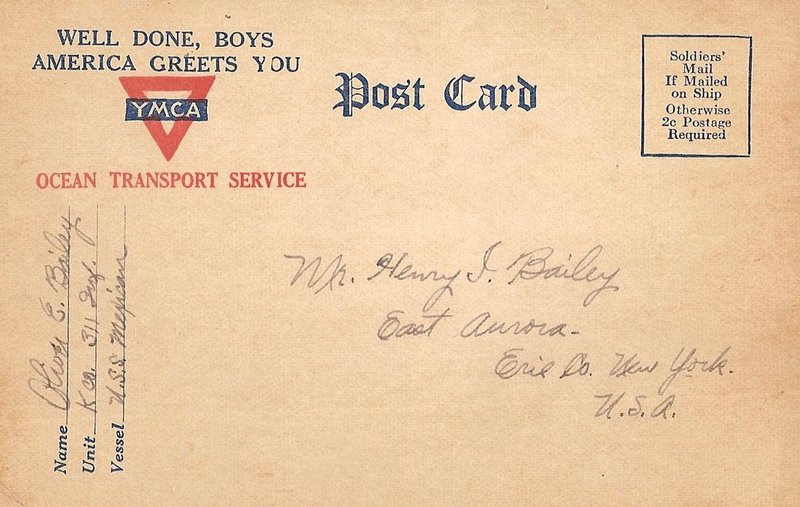 WELL DONE, BOYS
AMERICA GREETS YOU
YMCA
OCEAN TRANSPORT SERVICE
Post Card
Soldiers'
Mail
If Mailed
on Ship
Otherwise
2c Postage
Required
Mr. Henry I. Bailey
East Aurora-
Erie Co. New York.
U.S.A.
Name Oliver E. Bailey
Unit K Co. 311 Inf.
Vessel U.S.S. Mexican